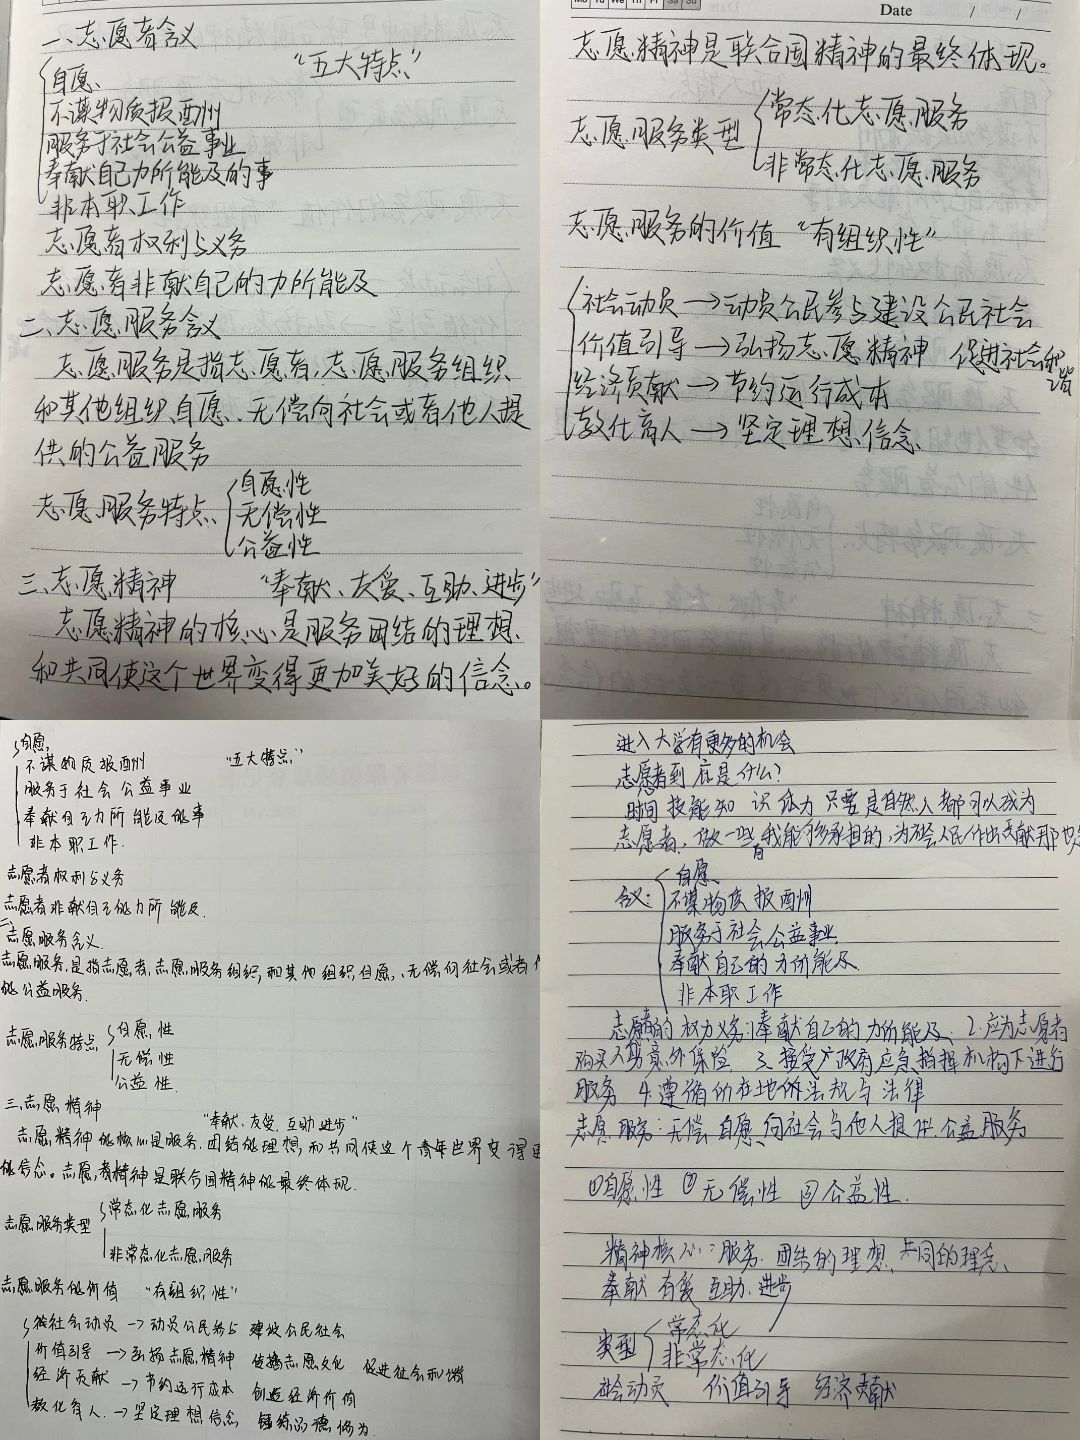 一、志愿者含义
自愿、 “五大特点”
不谋物质报酬
服务于社会公益事业
奉献自己力所能及的事
非本职工作
志愿者权利与义务
志愿者非献自己的力所能及
二、志愿服务含义
志愿服务是指志愿者,志愿服务组织
和其他组织自愿、无偿向社会或者他人提
供的公益服务
志愿服务特点
自愿性
无偿性
公益性
三、志愿精神 “奉献、友爱、互助、进步”
志愿精神的核心是服务团结的理想、
和共同使这个世界变得更加美好的信念。
Mo Tu We Th Fr Sa Su
Date / /
志愿精神是联合国精神的最终体现。
志愿服务类型
常态化志愿服务
非常态化志愿服务
志愿服务的价值 “有组织性”
社会动员→动员公民参与建设公民社会
价值引导→弘扬志愿精神 促进社会和谐
经济贡献→节约运行成本
教化育人→坚定理想信念
自愿、
不谋物质报酬 “五大特点”
服务于社会公益事业
奉献自己力所能及的事
非本职工作.
志愿者权利与义务
志愿者非献自己的力所能及.
二、志愿服务含义
志愿服务,是指志愿者,志愿服务组织,和其他组织自愿、无偿向社会或者
的公益服务.
志愿服务特点
自愿性
无偿性
公益性
三、志愿精神 “奉献、友爱、互助进步”
志愿精神的核心是服务、团结的理想,和共同使这个青年世界变得更
的信念。志愿者精神是联合国精神的最终体现.
志愿服务类型
常态化志愿服务
非常态化志愿服务
志愿服务的价值 “有组织性”
社会动员→动员公民参与 建设公民社会
价值引导→弘扬志愿精神 传播志愿文化 促进社会和谐
经济贡献→节约运行成本 创造经济价值
教化育人→坚定理想信念 锤炼品德修为.
进入大学有更多的机会
志愿者到底是什么?
时间 技能 知识 体力 只要是自然人都可以成为
志愿者、做一些有我能够承担的,为社会人民作出贡献那也
含义:
自愿、
不谋物质报酬
服务于社会公益事业
奉献自己的力所能及
非本职工作
志愿者的权力义务:1.奉献自己的力所能及、2.应为志愿者
购买人身意外保险 3.接受 政府应急指挥机构下进行
服务 4.遵循所在地的法规与法律
志愿服务:无偿 自愿、向社会与他人提供公益服务
①自愿性 ②无偿性 ③公益性.
精神核心:服务、团结的理想、共同的理念、
奉献 有爱 互助、进步
类型
常态化
非常态化
社会动员 价值引导 经济贡献